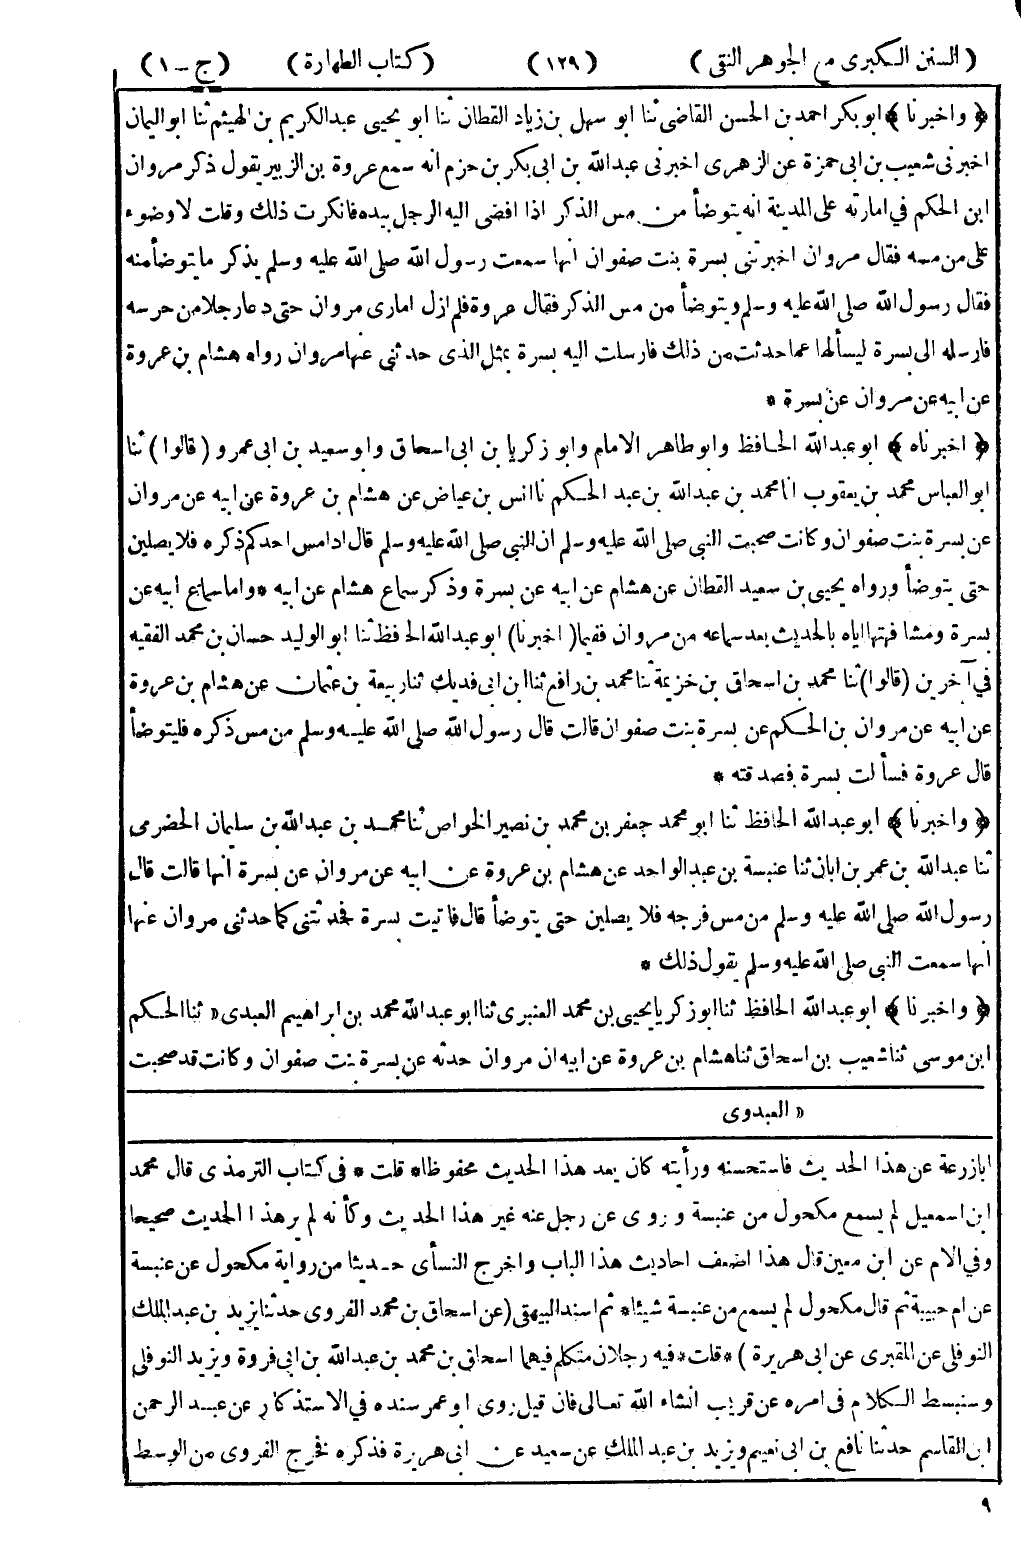 (السنن الكبرى مع الجوهر النقى) (١٢٩) (كتاب الطهارة) (ج - ١)
﴿ واخبرنا ﴾ ابو بكر احمد بن الحسن القاضى ثنا ابو سهل بن زياد القطان ثنا ابو يحيى عبدالكريم بن الهيثم ثنا ابو اليمان
اخبرنى شعيب بن ابى حمزة عن الزهرى اخبرنى عبدالله بن ابى بكر بن حزم انه سمع عروة بن الزبير يقول ذكر مروان
ابن الحكم في امارته على المدينة انه يتوضأ من مس الذكر اذا افضى اليه الرجل بيده فانكرت ذلك وقلت لا وضوء
على من مسه فقال مروان اخبرتنى بسرة بنت صفوان انها سمعت رسول الله صلى الله عليه وسلم يذكر ما يتوضأ منه
فقال رسول الله صلى الله عليه وسلم ويتوضأ من مس الذكر فقال عروة فلم ازل امارى مروان حتى دعا رجلا من حرسه
فارسله الى بسرة ليسألها عما حدثت من ذلك فارسلت اليه بسرة بمثل الذى حدثنى عنها مروان رواه هشام بن عروة
عن ابيه عن مروان عن بسرة *
﴿ اخبرناه ﴾ ابو عبدالله الحافظ وابو طاهر الامام وابو زكريا بن ابى اسحاق وابو سعيد بن ابى عمرو (قالوا) ثنا
ابو العباس محمد بن يعقوب انا محمد بن عبدالله بن عبد الحكم نا انس بن عياض عن هشام بن عروة عن ابيه عن مروان
عن بسرة بنت صفوان وكانت صحبت النبى صلى الله عليه وسلم ان النبى صلى الله عليه وسلم قال اذا مس احدكم ذكره فلا يصلين
حتى يتوضأ ورواه يحيى بن سعيد القطان عن هشام عن ابيه عن بسرة وذكر سماع هشام عن ابيه * واما سماع ابيه عن
بسرة ومشافهتها اياه بالحديث بعد سماعه من مروان ففيما (اخبرنا) ابو عبدالله الحافظ ثنا ابو الوليد حسان بن محمد الفقيه
في آخرين (قالوا) ثنا محمد بن اسحاق بن خزيمة ثنا محمد بن رافع ثنا ابن ابى فديك ثنا ربيعة بن عثمان عن هشام بن عروة
عن ابيه عن مروان بن الحكم عن بسرة بنت صفوان قالت قال رسول الله صلى الله عليه وسلم من مس ذكره فليتوضأ
قال عروة فسألت بسرة فصدقته *
﴿ واخبرنا ﴾ ابو عبدالله الحافظ ثنا ابو محمد جعفر بن محمد بن نصير الخواص ثنا محمد بن عبدالله بن سليمان الحضرمى
ثنا عبدالله بن عمر بن ابان ثنا عنبسة بن عبدالواحد عن هشام بن عروة عن ابيه عن مروان عن بسرة انها قالت قال
رسول الله صلى الله عليه وسلم من مس فرجه فلا يصلين حتى يتوضأ قال فاتيت بسرة فحدثتنى كما حدثنى مروان عنها
انها سمعت النبى صلى الله عليه وسلم يقول ذلك *
﴿ واخبرنا ﴾ ابو عبدالله الحافظ ثنا ابو زكريا يحيى بن محمد العنبرى ثنا ابو عبدالله محمد بن ابراهيم العبدى « ثنا الحكم
ابن موسى ثنا شعيب بن اسحاق ثنا هشام بن عروة عن ابيه ان مروان حدثه عن بسرة بنت صفوان وكانت قد صحبت
« العبدوى
ابا زرعة عن هذا الحديث فاستحسنه ورأيته كان يعد هذا الحديث محفوظا * قلت * فى كتاب الترمذى قال محمد
ابن اسمعيل لم يسمع مكحول من عنبسة وروى عن رجل عنه غير هذا الحديث وكأنه لم ير هذا الحديث صحيحا
وفي الام عن ابن معين قال هذا اضعف احاديث هذا الباب واخرج النسأى حديثا من رواية مكحول عن عنبسة
عن ام حبيبة ثم قال مكحول لم يسمع من عنبسة شيئا * ثم اسند البيهقى (عن اسحاق بن محمد الفروى حدثنا يزيد بن عبدالملك
النوفلى عن المقبرى عن ابى هريرة) * قلت * فيه رجلان متكلم فيهما اسحاق بن محمد بن عبدالله بن ابى فروة ويزيد النوفلى
وسنبسط الكلام فى امره عن قريب انشاء الله تعالى فان قيل روى ابو عمر سنده في الاستذكار عن عبد الرحمن
ابن القاسم حدثنا نافع بن ابى نعيم ويزيد بن عبد الملك عن سعيد عن ابى هريرة فذكره فخرج الفروى من الوسط
٩